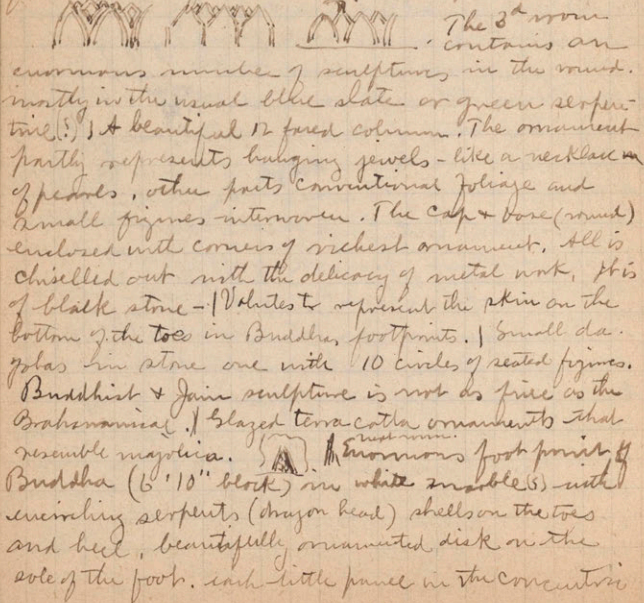 The 3d room
contains an
enormous number of sculptures in the round.
mostly in the usual blue slate or green serpen-
tine(?) | A beautiful 12 faced column. The ornament
partly represents hanging jewels - like a necklace
of pearls, other parts conventional foliage and
small figures interwoven. The cap & base (round)
enclosed with corners of richest ornament. All is
chiselled out with the delicacy of metal work. It is
of black stone - | Volutes to represent the skin on the
bottom of the toes in Buddhas footprints. | Small da-
gobas in stone one with 10 circles of seated figures.
Buddhist & Jain sculpture is not as fine as the
Brahmanical. | Glazed terra cotta ornaments that
resemble majolica. next room. Enormous foot print of
Buddha ( '10" block) in white marble(?) with
encircling serpents (dragon head) shells on the toes
and heel, beautifully ornamented disk on the
sole of the foot. each little panel in the concentric